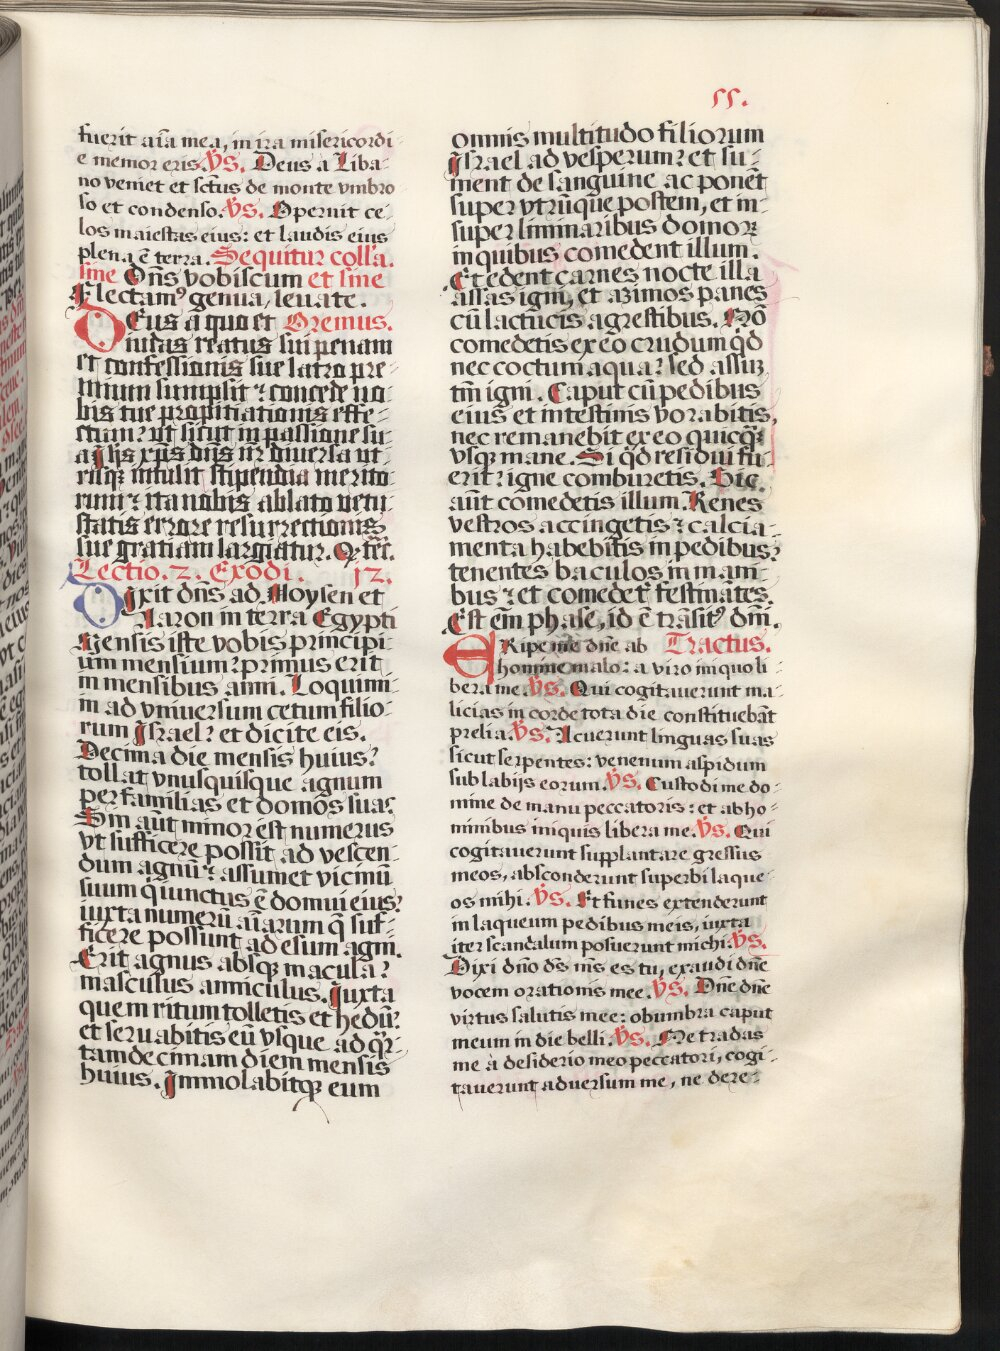 55.
fuerit aīa mea, in ira misericordi-
e memor eris. Vs. Deus a Liba-
no veniet et sctūs de monte vmbro
so et condenso. Vs. Operuit ce-
los maiestas eius: et laudis eius
plena ē terra. Sequitur colla.
sine Dn̄s vobiscum et sine
Flectamꝰ genua, leuate.
DEus a quo et Oremus.
iudas reatus sui penam
et confessionis sue latro pre-
mium sumpsit ⁊ concede no-
bis tue propitiationis effe-
ctum? vt sicut in passione su-
a Jh̄s xp̄s dn̄s nr̄ diuersa vt-
risqꝫ intulit stipendia merito-
rum ⁊ ita nobis ablato vetu-
statis errore resurrectionis
sue gratiam largiatur. Q. tec̄.
Lectio. 2. Exodi. 12.
DIxit dn̄s ad Moysen et
Aaron in terra Egypti
Mensis iste vobis principi-
um mensium? primus erit
in mensibus anni. Loquimi-
ni ad vniuersum cetum filio-
rum Israel? et dicite eis.
Decima die mensis huius?
tollat vnusquisque agnum
per familias et domos suas
Sin aūt minor est numerus
vt sufficere possit ad vescen-
dum agnū? assumet vicinū
suum q̄ iunctus ē domui eius?
iuxta numerū aīarum q̄ suf-
ficere possunt ad esum agni.
Erit agnus absqꝫ macula?
masculus anniculus. Juxta
quem ritum tolletis et hedū?
et seruabitis eū vsque ad qr̄-
tamdecimam diem mensis
huius. Immolabitqꝫ eum
omnis multitudo filiorum
Israel ad vesperum? et su-
ment de sanguine ac ponēt
super vtrūque postem, et in
superliminaribus domoꝝ
in quibus comedent illum.
Et edent carnes nocte illa
assas igni, et azimos panes
cū lactucis agrestibus. Nō
comedetis ex eo crudum qd̄
nec coctum aqua? sed assuꝫ
tm̄ igni. Caput cū pedibus
eius et intestinis vorabitis,
nec remanebit ex eo quicqꝫ
vsqꝫ mane. Si qd̄ residui fu-
erit? igne comburetis. Sic
aūt comedetis illum. Renes
vestros accingetis ⁊ calcia-
menta habebitis in pedibus?
tenentes baculos in mani-
bus ⁊ et comedet᷑ festinātes.
Est em̄ phase, id ē trāsitꝰ dn̄i.
ERipe me dn̄e ab Tractus.
homine malo: a viro iniquo li-
bera me. Vs. Qui cogitauerunt ma-
licias in corde tota die constituebāt
prelia. Vs. Acuerunt linguas suas
sicut serpentes: venenum aspidum
sub labijs eorum. Vs. Custodi me do-
mine de manu peccatoris: et ab ho-
minibus iniquis libera me. Vs. Qui
cogitauerunt supplantare gressus
meos, absconderunt superbi laque-
os mihi. Vs. Et funes extenderunt
in laqueum pedibus meis, iuxta
iter scandalum posuerunt michi. Vs.
Dixi dn̄o ds̄ ms̄ es tu, exaudi dn̄e
vocem orationis mee. Vs. Dn̄e dn̄e
virtus salutis mee: obumbra caput
meum in die belli. Vs. Ne tradas
me à desiderio meo peccatori, cogi-
tauerunt aduersum me, ne dere-